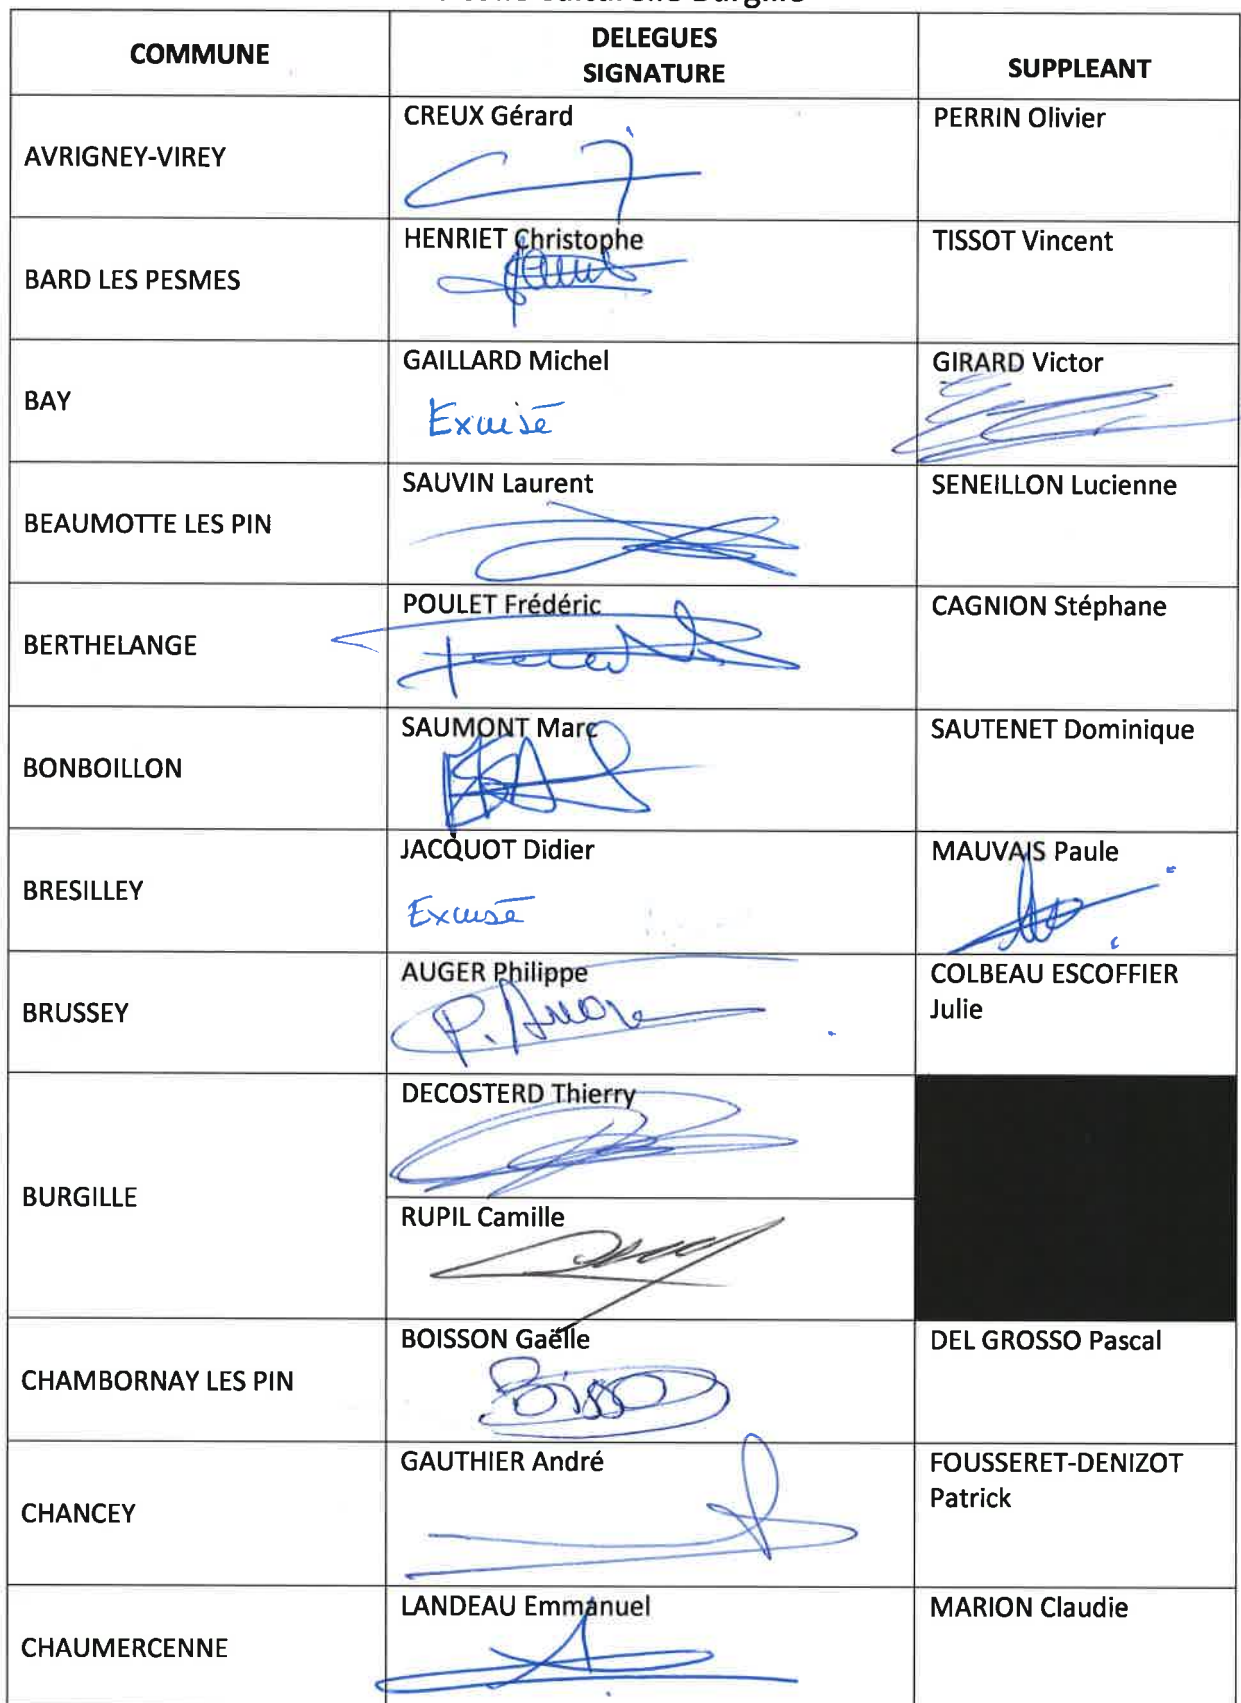 COMMUNE
DELEGUES
SIGNATURE
SUPPLEANT
AVRIGNEY-VIREY
CREUX Gérard
PERRIN Olivier
BARD LES PESMES
HENRIET Christophe
TISSOT Vincent
BAY
GAILLARD Michel
Excusé
GIRARD Victor
BEAUMOTTE LES PIN
SAUVIN Laurent
SENEILLON Lucienne
BERTHELANGE
POULET Frédéric
CAGNION Stéphane
BONBOILLON
SAUMONT Marc
SAUTENET Dominique
BRESILLEY
JACQUOT Didier
Excusé
MAUVAIS Paule
BRUSSEY
AUGER Philippe
COLBEAU ESCOFFIER
Julie
BURGILLE
DECOSTERD Thierry
RUPIL Camille
CHAMBORNAY LES PIN
BOISSON Gaëlle
DEL GROSSO Pascal
CHANCEY
GAUTHIER André
FOUSSERET-DENIZOT
Patrick
CHAUMERCENNE
LANDEAU Emmanuel
MARION Claudie